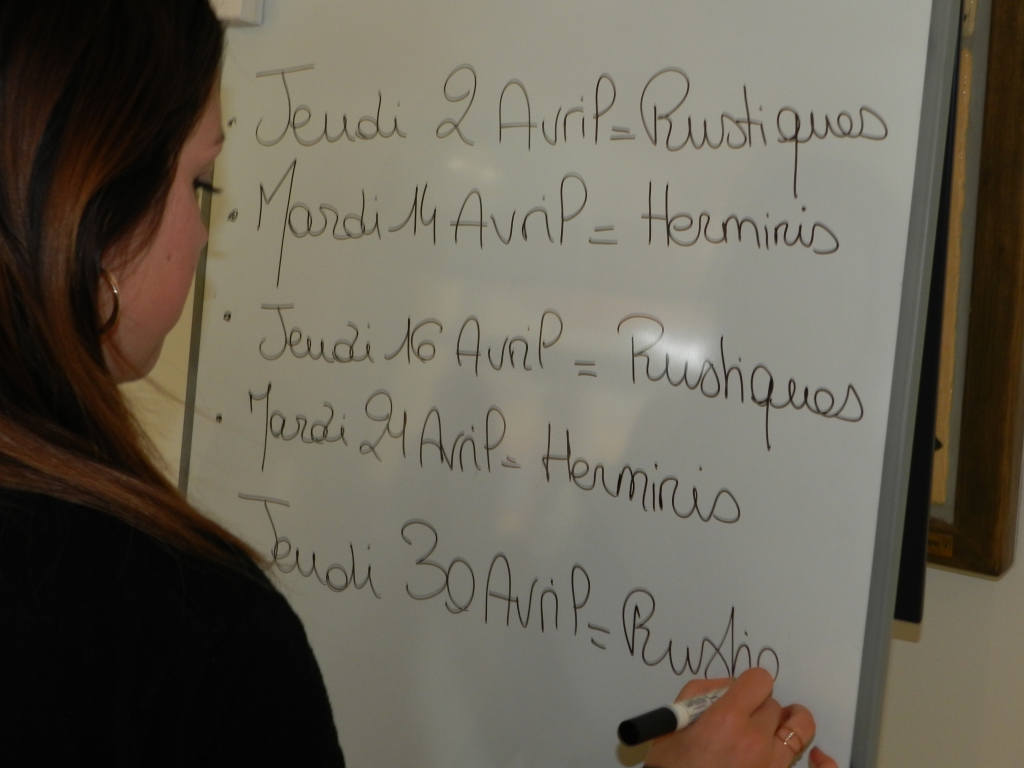 • Jeudi 2 Avril = Rustiques
• Mardi 14 Avril = Herminis
• Jeudi 16 Avril = Rustiques
• Mardi 21 Avril = Herminis
Jeudi 30 Avril = Rustiq